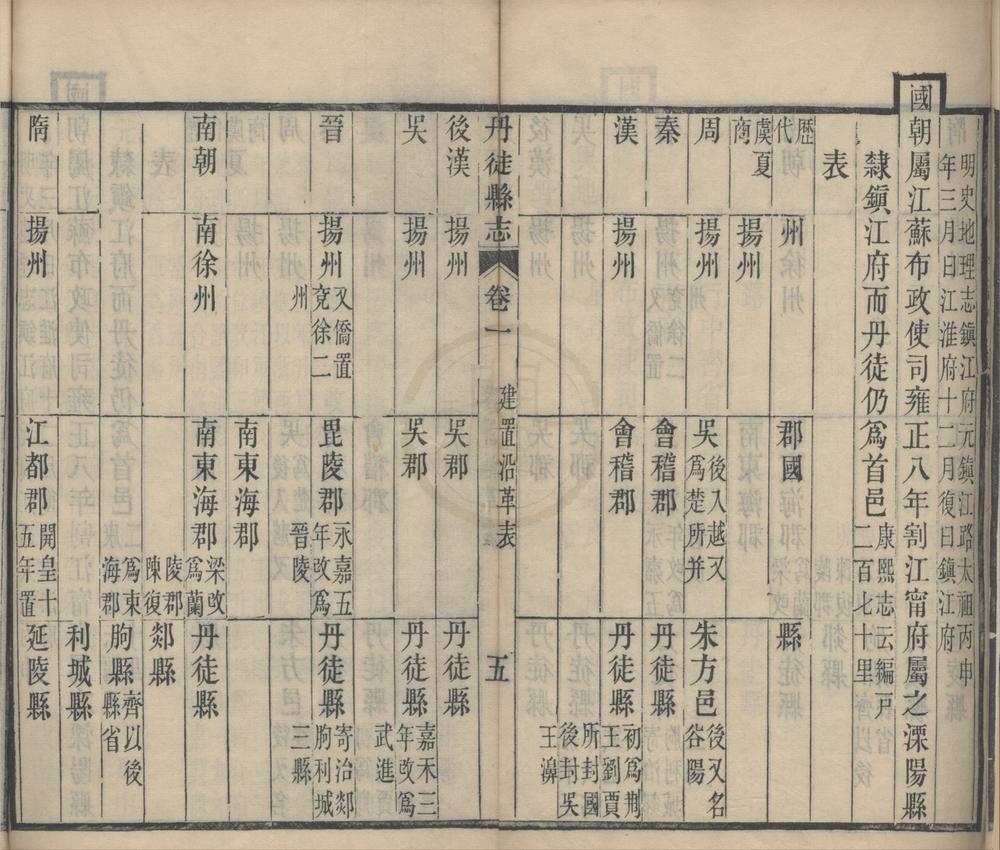 明史地理志鎮江府元鎮江路太祖丙申
年三月曰江淮府十二月復曰鎮江府
國朝屬江蘇布政使司雍正八年割江甯府屬之溧陽縣
隸鎮江府而丹徒仍爲首邑康熙志云編戸
二百七十里
表
歷代 州 郡國 縣
虞夏商 揚州
周 揚州 吳後入越又爲楚所并 朱方邑後又名谷陽
秦 會稽郡 丹徒縣
漢 揚州 會稽郡 丹徒縣初爲荆王劉賈所封國後封吳王濞
丹徒縣志 卷一 建置沿革表 五
後漢 揚州 吳郡 丹徒縣
吳 揚州 吳郡 丹徒縣嘉禾三年改爲武進
晉 揚州又僑置兗徐二州 毘陵郡永嘉五年改爲晉陵 丹徒縣寄治郯朐利城三縣
南東海郡
南朝 南徐州 南東海郡梁改爲蘭陵郡陳復爲東海郡 丹徒縣
郯縣
朐縣齊以後縣省
利城縣
隋 揚州 江都郡開皇十五年置 延陵縣